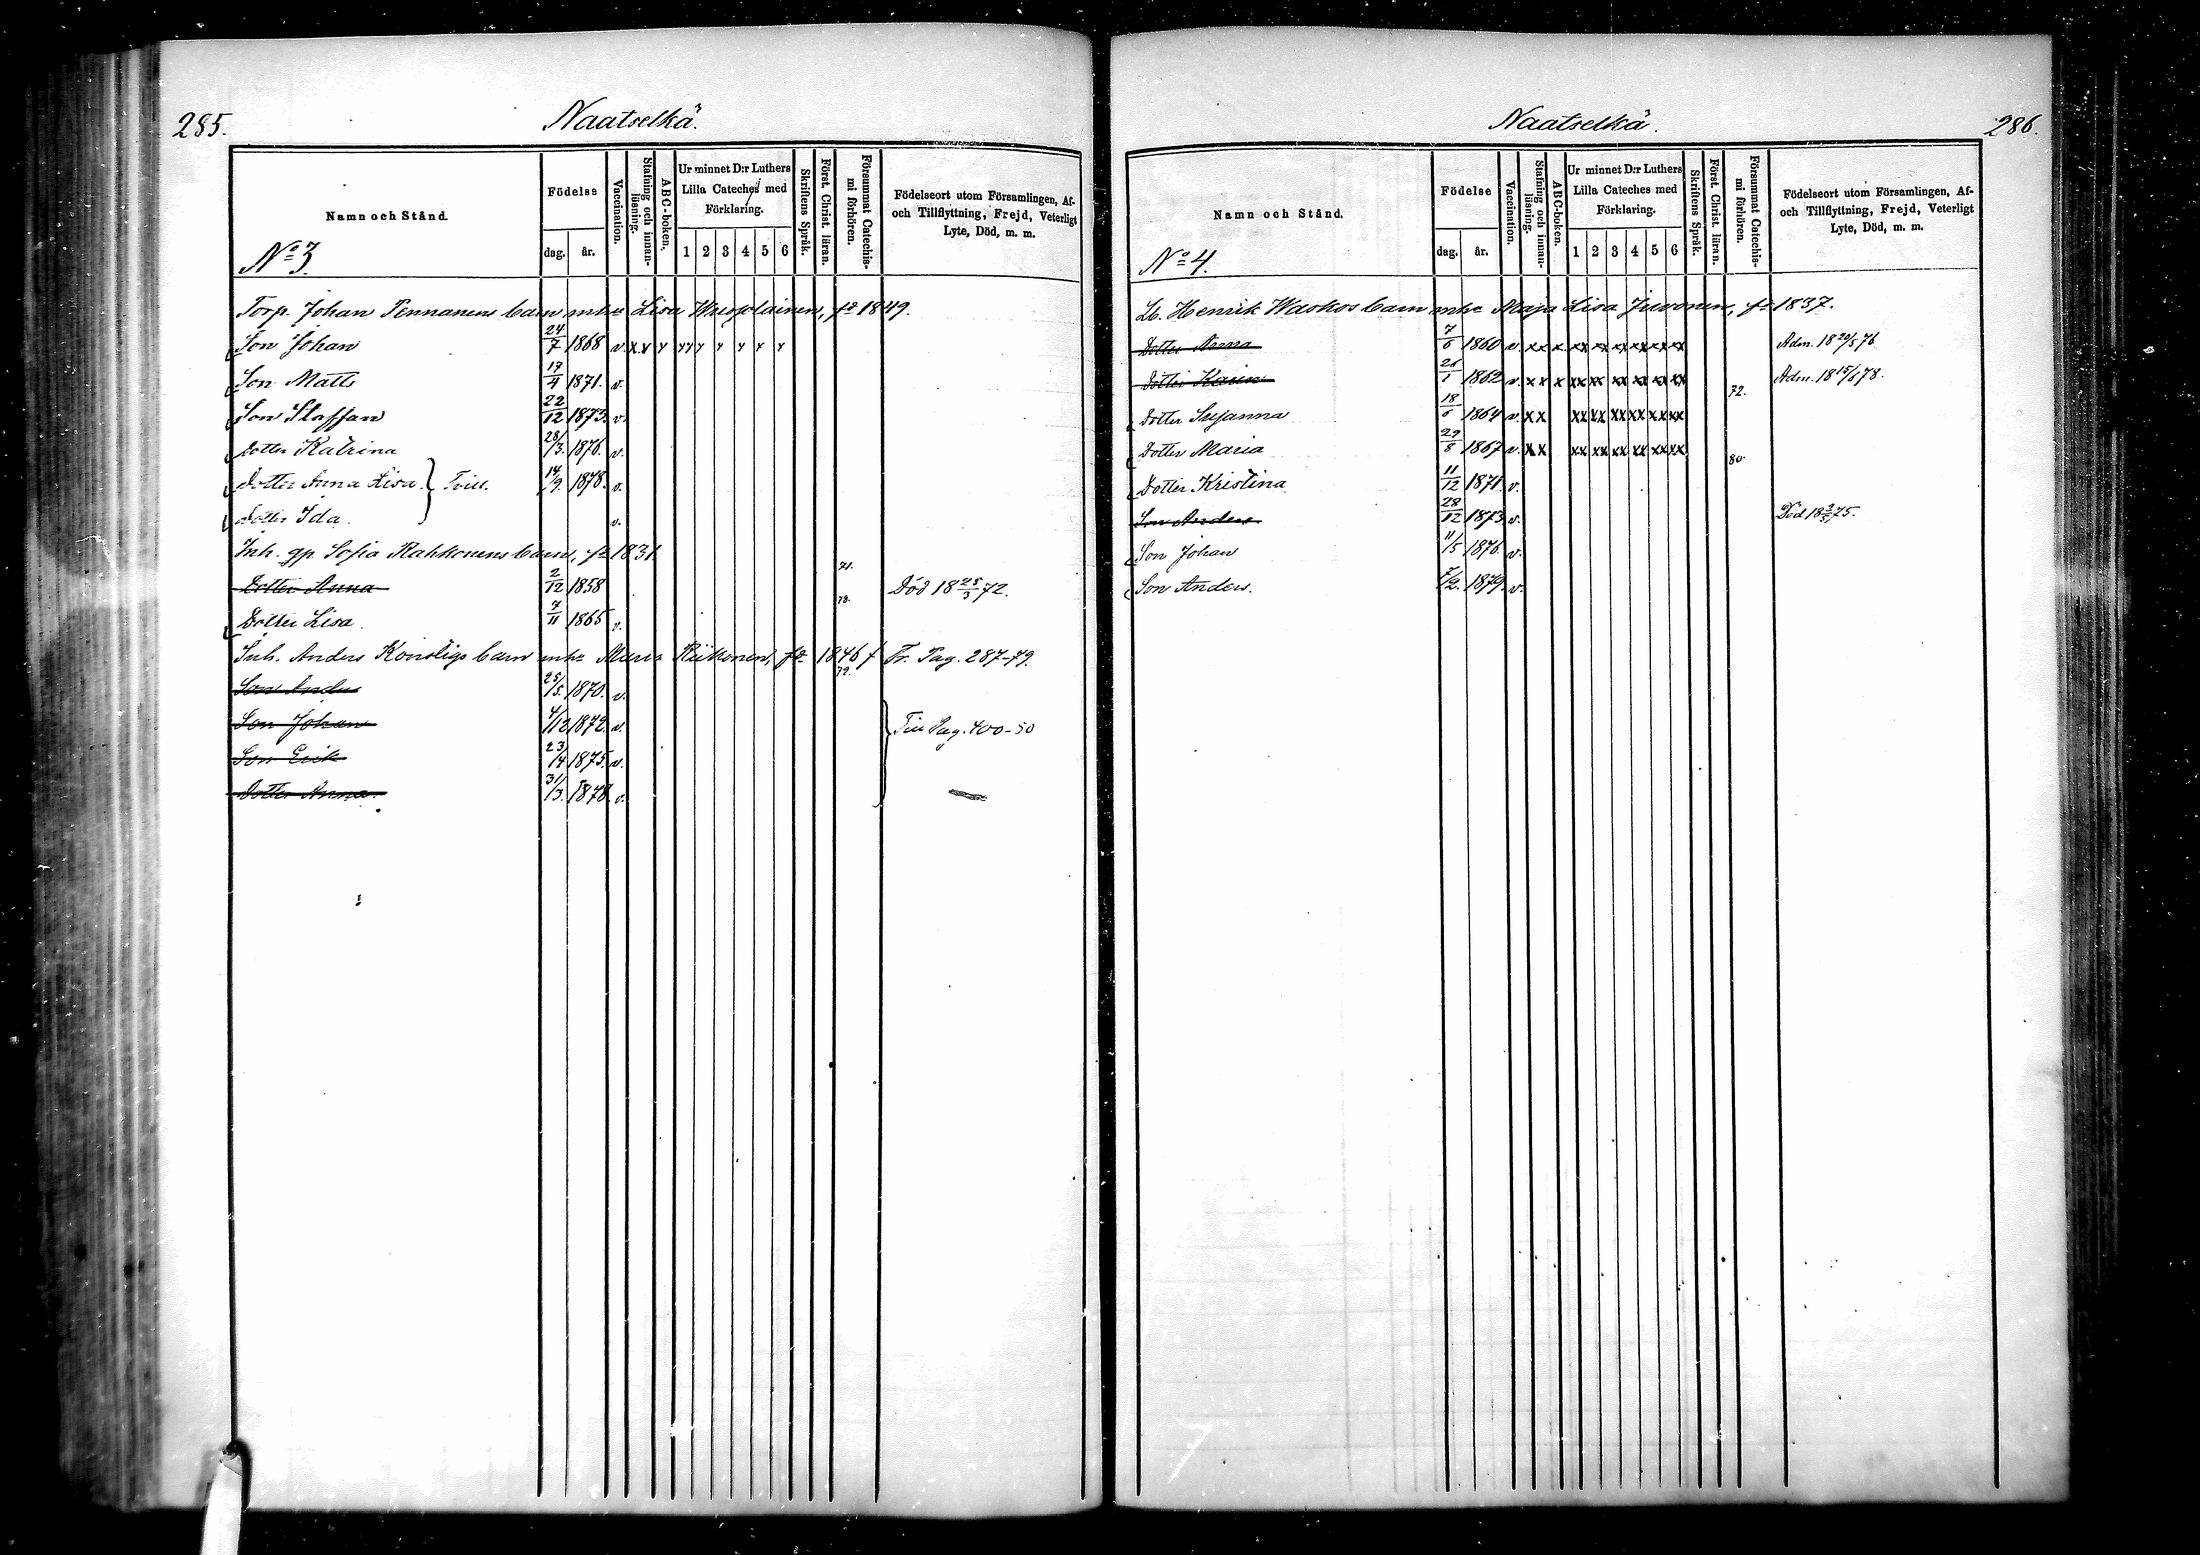 285.
Naatselkä.
Namn och Stånd.
Födelse
dag.
år.
Vaccination.
Stafning och innan-
läsning.
ABC-boken.
Ur minnet D:r Luthers
Lilla Cateches med
Förklaring.
1 2 3 4 5 6
Skriftens Språk.
Först. Christ. läran.
Försummat Catechis-
mi förhören.
Födelseort utom Församlingen, Af-
och Tillflyttning, Frejd, Veterligt
Lyte, Död, m. m.
No 3.
Torp. Johan Pennanens barn mhu Lisa fo 1849.
Son Johan 24/7 1868 v. x x y yy y y y y y
Son Matts 17/4 1871. v.
Son Staffan 22/12 1873. v.
Dotter Katrina 28/3. 1876. v.
Dotter Anna Lisa } Tvill. 14/9. 1878. v.
Dotter Ida. v.
Inh. gp. Sofia Rahkonens barn, fo 1831.
71.
Dotter Anna 2/12 1858 Död 18 25/3 72.
78.
Dotter Lisa. 7/11 1865 v.
Inh. Anders barn mhu Maria Riikonen, fo 1846 f Fr. Pag. 287-79.
72.
Son Anders 25/5. 1870. v.
Son Johan 4/12 1872. v. Till Pag. 400-50
Son Erik 23/14 1875. v.
Dotter Anna. 31/3. 1878. v.
Naatselkä.
286.
Namn och Stånd.
Födelse
dag.
år.
Vaccination.
Stafning och innan-
läsning.
ABC-boken.
Ur minnet D:r Luthers
Lilla Cateches med
Förklaring.
1 2 3 4 5 6
Skriftens Språk.
Först. Christ. läran.
Försummat Catechis-
mi förhören.
Födelseort utom Församlingen, Af-
och Tillflyttning, Frejd, Veterligt
Lyte, Död, m. m.
No 4.
Lb. Henrik Waskos barn mhu Maja Lisa Juvonen, fo 1837.
Dotter Anna 7/6 1860 v. xx x. xx xx xx xx xx xx Adm. 18 20/5 76
Dotter Karin 1862 v. xx x xx xx xx xx xx xx Adm. 18 15/6 78.
72.
Dotter Susanna 18/6 1864 v. xx xx xx xx xx xx xx
Dotter Maria 29/8 1867 v. xx xx xx xx xx xx xx
80.
Dotter Kristina 11/12 1871. v.
Son Anders. 28/12 1873. v. Död 18 75.
Son Johan 11/5 1876. v.
Son Anders. 7/2. 1879. v.